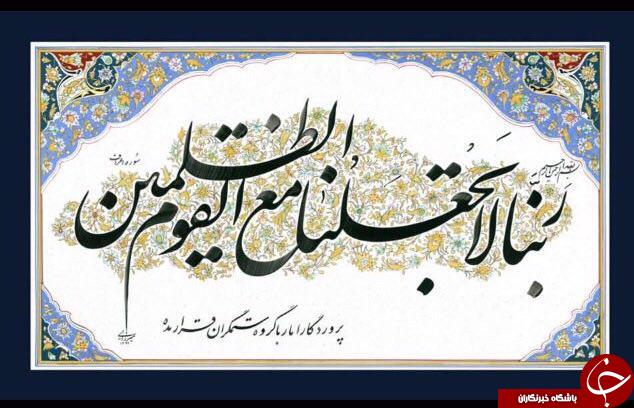 بسم الله الرحمن الرحیم
ربنا لا تجعلنا مع القوم الظلمین
سوره اعراف
پروردگارا ما را با گروه ستمگران قرار مده
باشگاه خبرنگاران